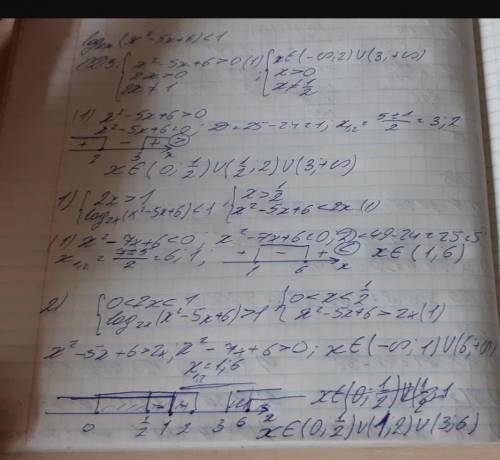 log₂ₓ(x²-5x+6)<1
ОДЗ: { x²-5x+6>0 (1) ; { x∈(-∞,2)∪(3,+∞)
2x>0 x>0
2x≠1 x≠1/2
(1) x²-5x+6>0
x²-5x+6=0; D=25-24=1; x₁,₂=(5±1)/2=3,2
+ - +
2 3 x
x∈(0,1/2)∪(1/2,2)∪(3,+∞)
1) { 2x>1 { x>1/2
log₂ₓ(x²-5x+6)<1 x²-5x+6<2x (1)
(1) x²-7x+6<0; x²-7x+6=0; D=49-24=25=5
x₁,₂=(7±5)/2=6;1; + - + x∈(1,6)
1 6 x
2) { 0<2x<1 { 0<x<1/2
log₂ₓ(x²-5x+6)>1 x²-5x+6>2x (1)
x²-5x+6>2x; x²-7x+6>0; x∈(-∞,1)∪(6,+∞)
x₁,₂=1;6
0 1/2 1 2 3 6 x
x∈(0,1/2)∪(1,2)∪(3,6)